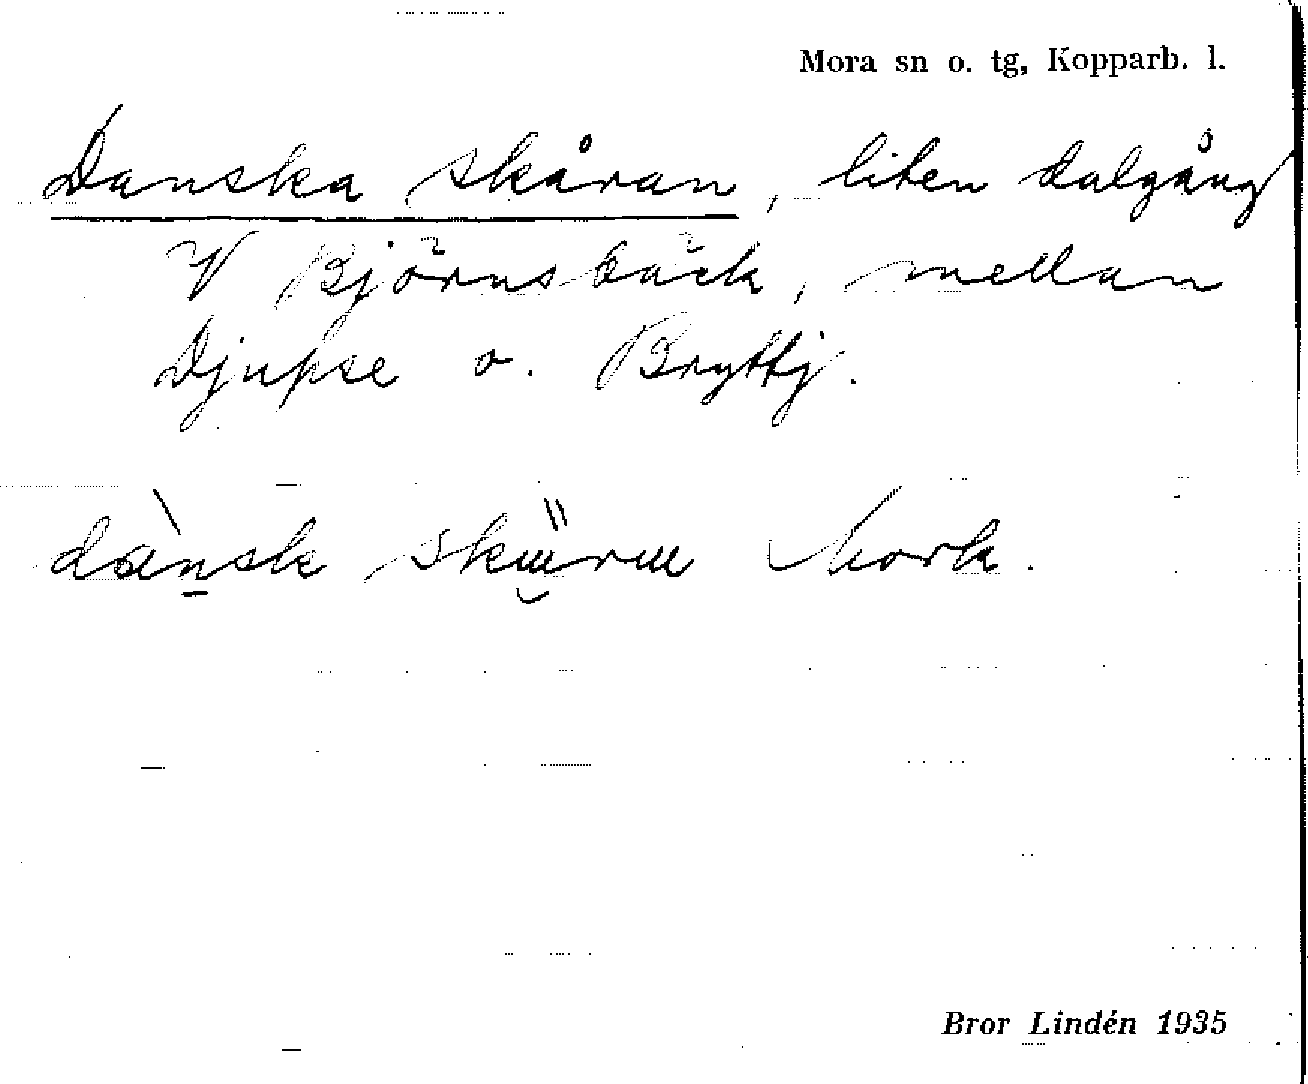 Mora sn o. tg, Kopparb. l.
Danska skåran, liten dalgång
V Björnsbäck, mellan
Djupse o. Bryttj.
dànsk
Bror Lindén 1935